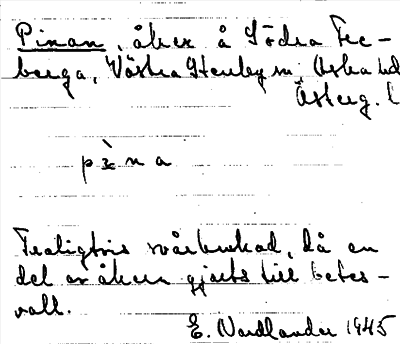 Pinan, åker å Södra Fre-
berga, Västra Stenby sn, Aska hd
Österg. l
pı̀na
Troligtvis svårbrukad, då en
del av åkern gjorts till betes-
vall.
E. Nordlander 1945